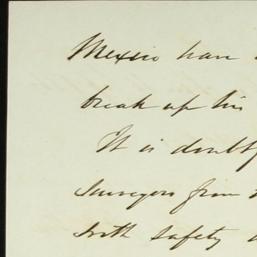 Mexico have
break up his
It is doubtf
surveyors from
with safety